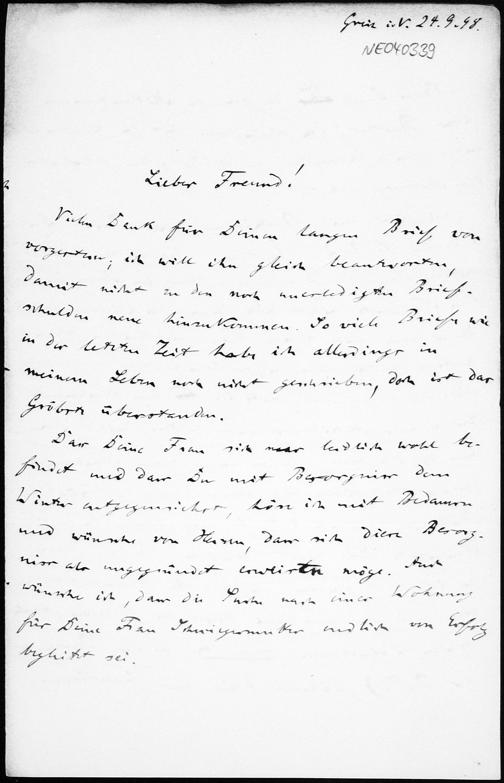 Greiz i. V. 24.9.98.
NE040339
Lieber Freund!
Vielen Dank für Deinen langen Brief von
vorgestern; ich will ihn gleich beantworten,
damit nicht zu den noch unerledigten Brief-
schulden neue hinzukommen. So viele Briefe wie
in der letzten Zeit habe ich allerdings in
meinem Leben noch nicht geschrieben, doch ist das
Gröbste überstanden.
Dass Deine Frau sich nur leidlich wohl be-
findet und dass Du mit Besorgniss dem
Winter entgegensiehst, höre ich mit Bedauern
und wünsche von Herzen, dass sich diese Besorg-
niss als ungegründet erweisen möge. Auch
wünsche ich, dass die Suche nach einer Wohnung
für Deine Frau Schwiegermutter endlich von Erfolg
begleitet sei.